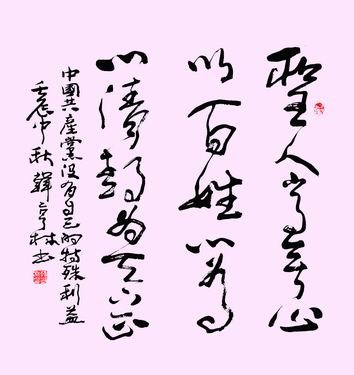 聖人常無心
以百姓心為
心清靜為天下正
中國共產黨沒有自己的特殊利益
壬辰中秋韓亨林书